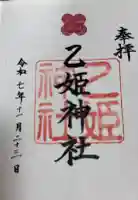 奉拝
乙姫神社
乙姫神社
令和七年十一月二十三日